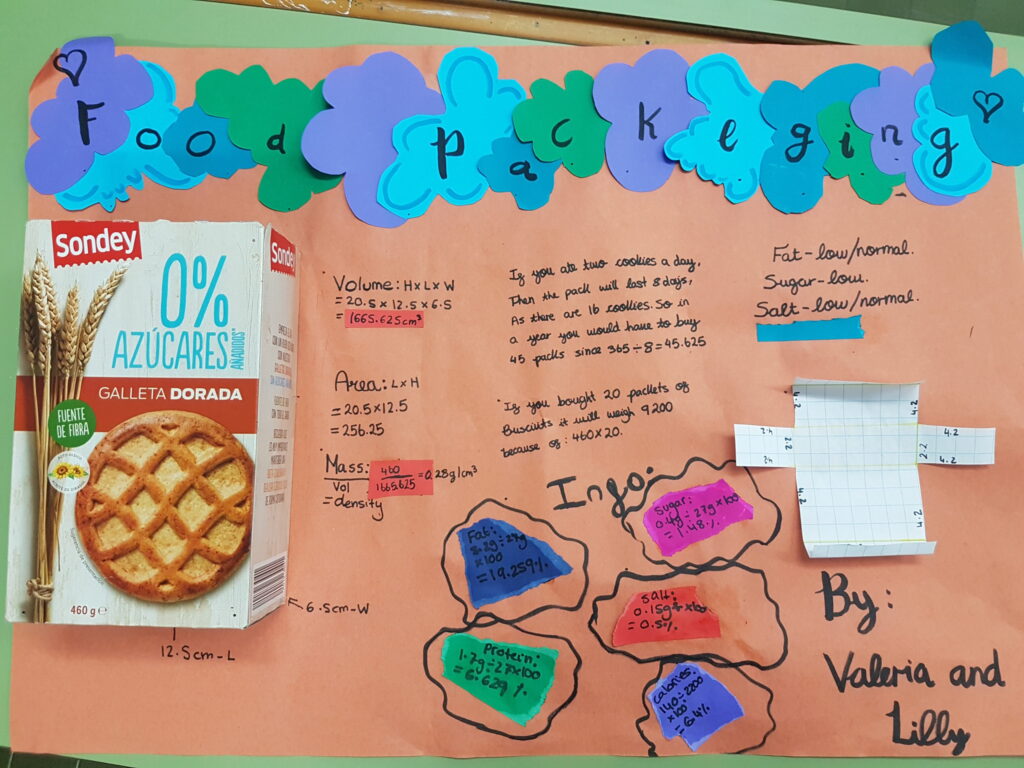 Food packeging
Sondey
0%
AZÚCARES
AÑADIDOS
GALLETA DORADA
FUENTE
DE FIBRA
460 g e
Sondey
12.5cm-L
6.5cm-W
Volume: H×L×W
= 20.5 × 12.5 × 6.5
= 1665.625cm³
Area: L×H
= 20.5×12.5
= 256.25
Mass: 460 = 0.28g/cm³
Vol 1665.625
= density
If you ate two cookies a day,
Then the pack will last 8 days,
As there are 16 cookies. So in
a year you would have to buy
45 packs since 365÷8=45.625
If you bought 20 packets of
Buscuits it will weigh 9200
because of: 460×20.
Fat-low/normal.
Sugar-low.
Salt-low/normal.
4.2
4.2
2.4
2.2
2.2
4.2
2.4
4.2
4.2
4.2
Info:
Sugar:
0.4g÷27g×100
= 1.48%
Fat:
5.2g÷27g
×100
= 19.259%
Salt:
0.15g÷×100
= 0.5%
Protein:
1.7g÷27×100
= 6.629%
Calories:
140÷2200
×100
= 6.4%
By:
Valeria and
Lilly